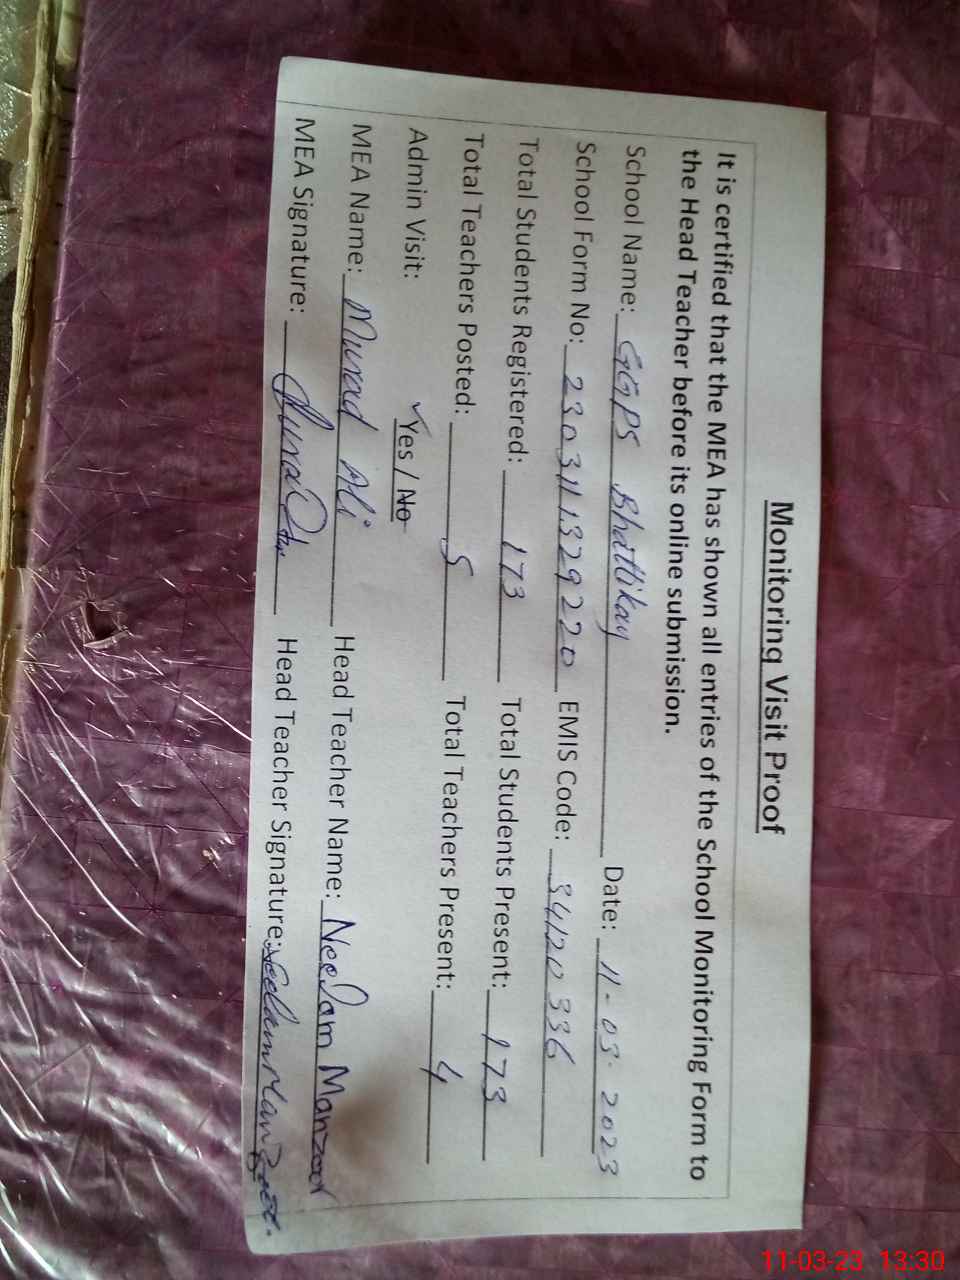 Monitoring Visit Proof
It is certified that the MEA has shown all entries of the School Monitoring Form to
the Head Teacher before its online submission.
School Name: GGPS Bhattikay Date: 11-03-2023
School Form No: 230311329220 EMIS Code: 34120336
Total Students Registered: 173 Total Students Present: 173
Total Teachers Posted: 5 Total Teachers Present: 4
Admin Visit: ✓Yes / No
MEA Name: Murad Ali Head Teacher Name: Neelam Manzoor
MEA Signature: Head Teacher Signature: Neelam Manzoor
11-03-23 13:30